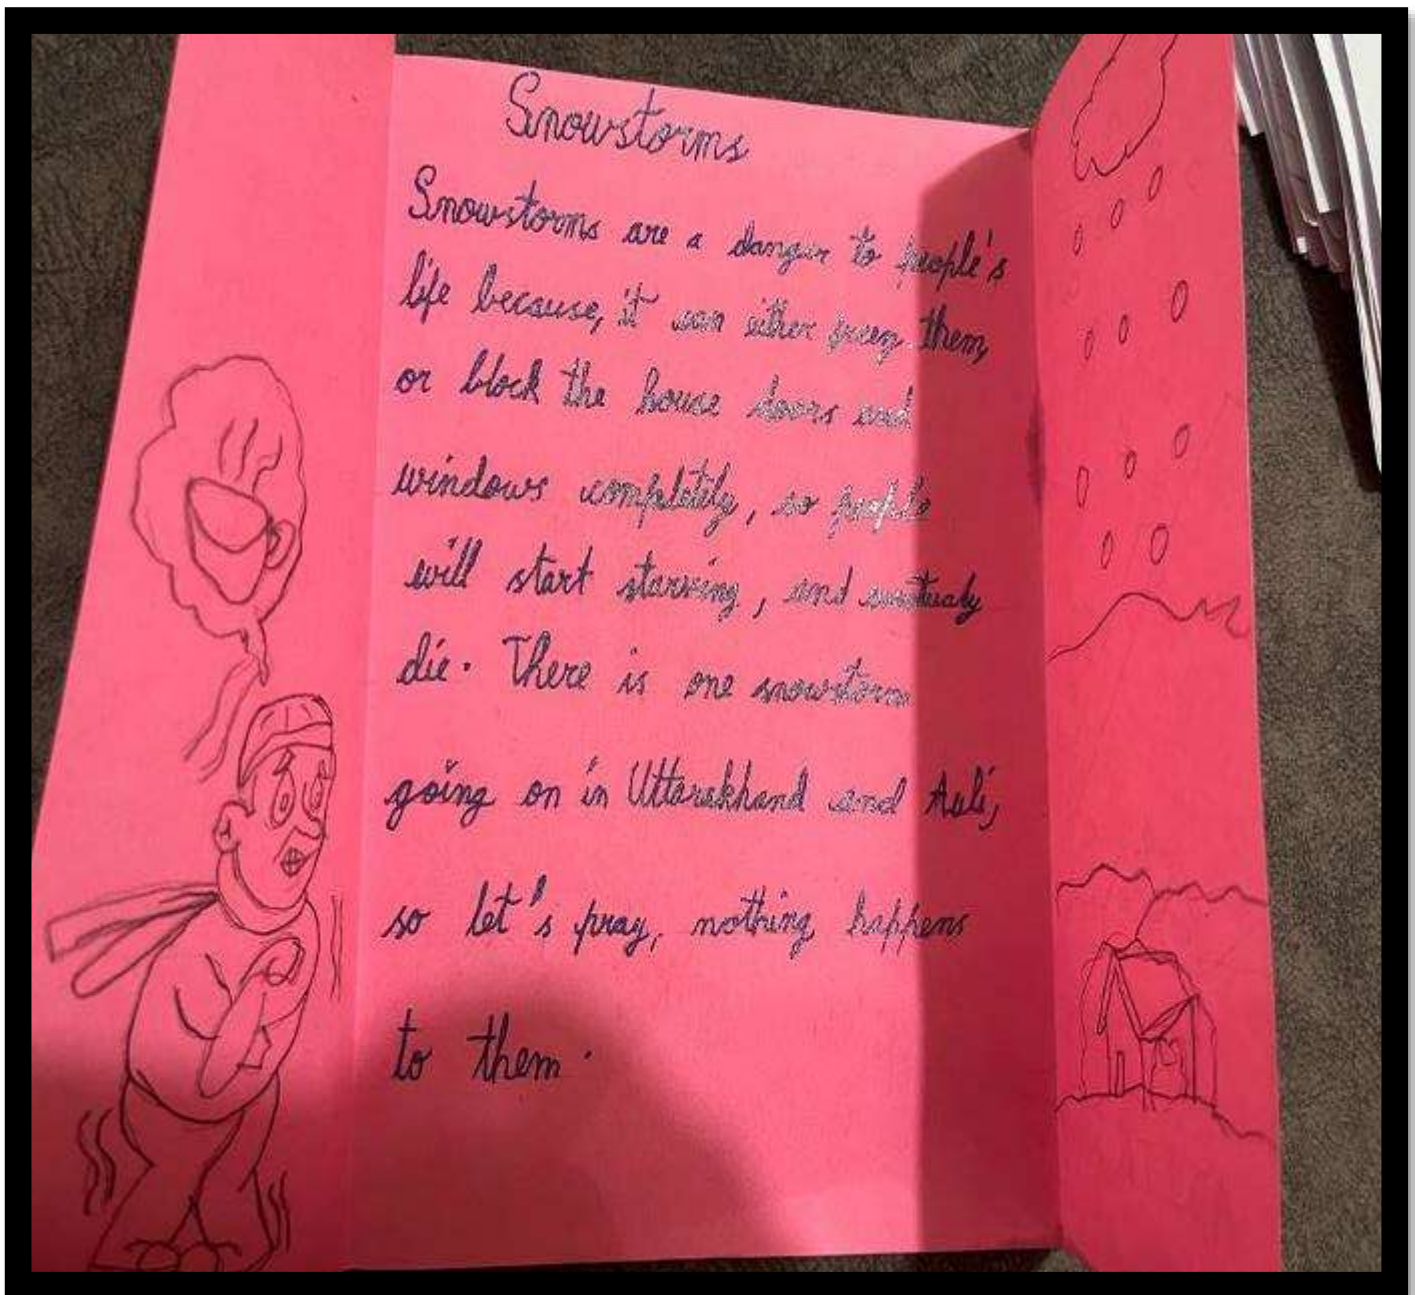 Snowstorms
Snowstorms are a danger to people's
life because, it can either freez them,
or block the house doors and
windows completely, so people
will start starving, and eventualy
die. There is one snowstorm
going on in Uttarakhand and Auli,
so let's pray, nothing happens
to them.